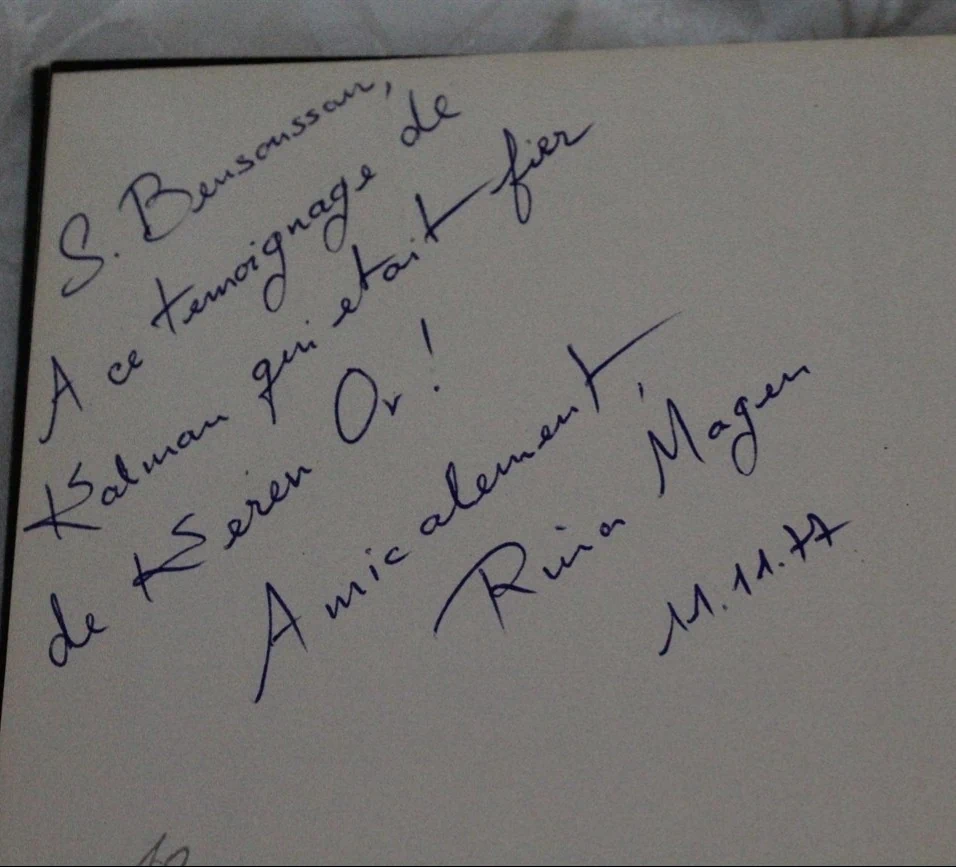 S. Bensoussan,
A ce temoignage de
Kalman qui etait fier
de Keren Or !
Amicalement,
Rina Magen
11.11.77